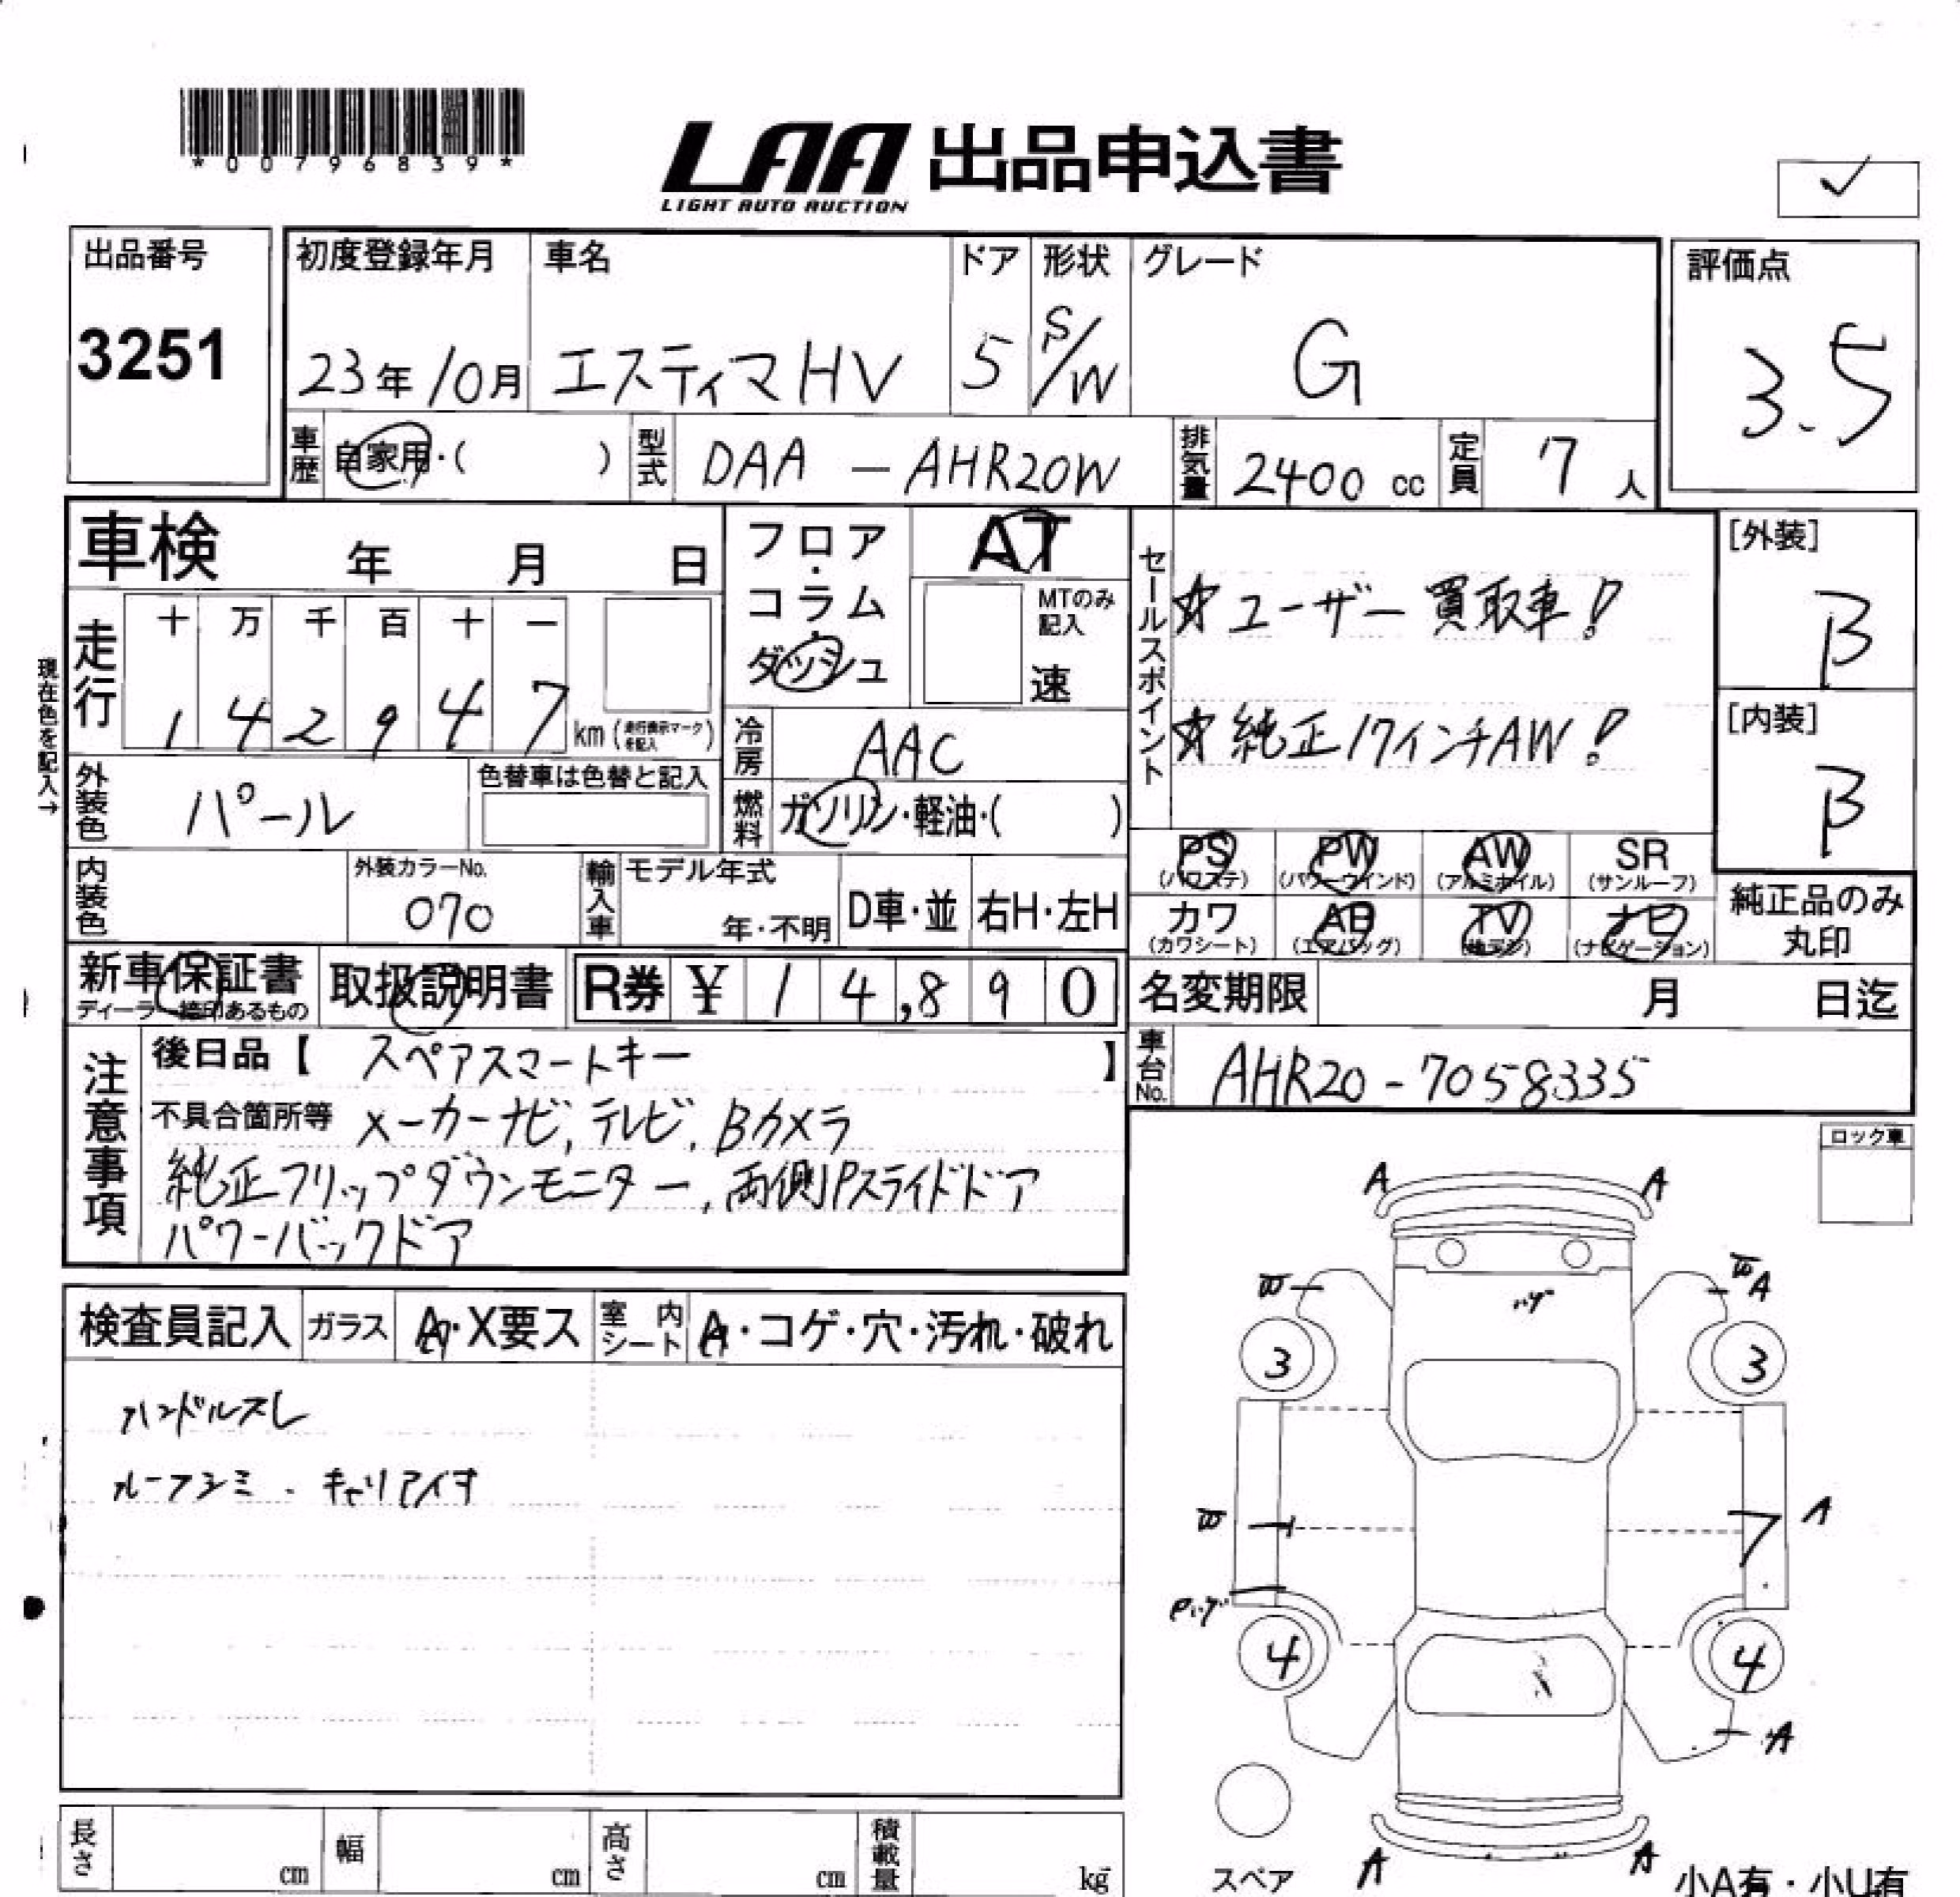 *00796839*
LAA 出品申込書
LIGHT AUTO AUCTION
✓
出品番号
3251
初度登録年月
23年10月
車名
エスティマHV
ドア
5
形状
S/W
グレード
G
評価点
3.5
車歴
自家用・( )
型式
DAA - AHR20W
排気量
2400 cc
定員
7 人
車検 年 月 日
フロア・コラム・ダッシュ
AT
MTのみ記入
速
セールスポイント
☆ユーザー買取車!
☆純正17インチAW!
[外装]
B
[内装]
B
現在色を記入→
走行
十 万 千 百 十 一
1 4 2 9 4 7
km (走行表示マークを記入)
冷房
AAC
外装色
パール
色替車は色替と記入
燃料
ガソリン・軽油・( )
PS (パワステ)
PW (パワーウインド)
AW (アルミホイル)
SR (サンルーフ)
カワ (カワシート)
AB (エアバッグ)
TV (地デジ)
ナビ (ナビゲーション)
純正品のみ丸印
内装色
外装カラーNo.
070
輸入車
モデル年式
年・不明
D車・並
右H・左H
新車保証書
ディーラー捺印あるもの
取扱説明書
R券 ¥ 14,890
名変期限 月 日迄
車台No.
AHR20-7058335
注意事項
後日品【 スペアスマートキー 】
不具合箇所等 メーカーナビ,テレビ,Bカメラ
純正フリップダウンモニター,両側Pスライドドア
パワーバックドア
ロック車
検査員記入
ガラス
A・X要ス
室内シート
A・コゲ・穴・汚れ・破れ
ハンドルスレ
ルーフシミ・キャリアイタ
A A
W W A
ハゲ
3 3
W A
Pハゲ
4 4
A
A A
スペア
小A有・小U有
長さ cm
幅 cm
高さ cm
積載量 kg